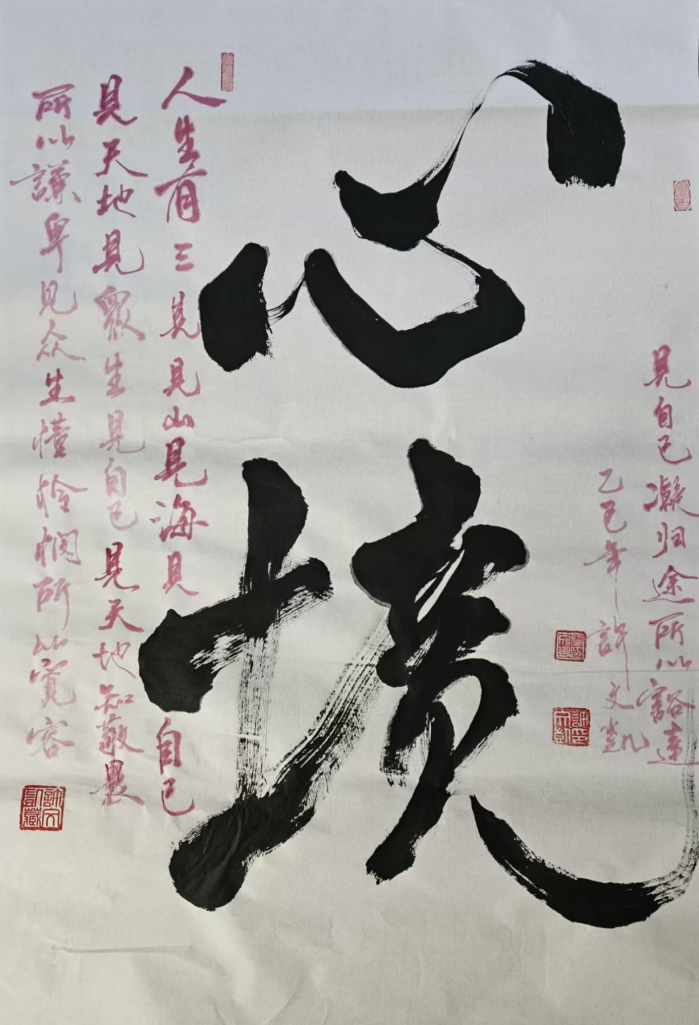 心境
人生有三見見山見海見自己
見天地見眾生見自己見天地知敬畏
所以謙卑見众生懂怜悯所以寬容
見自己凝归途所以豁達
乙巳年許文凱